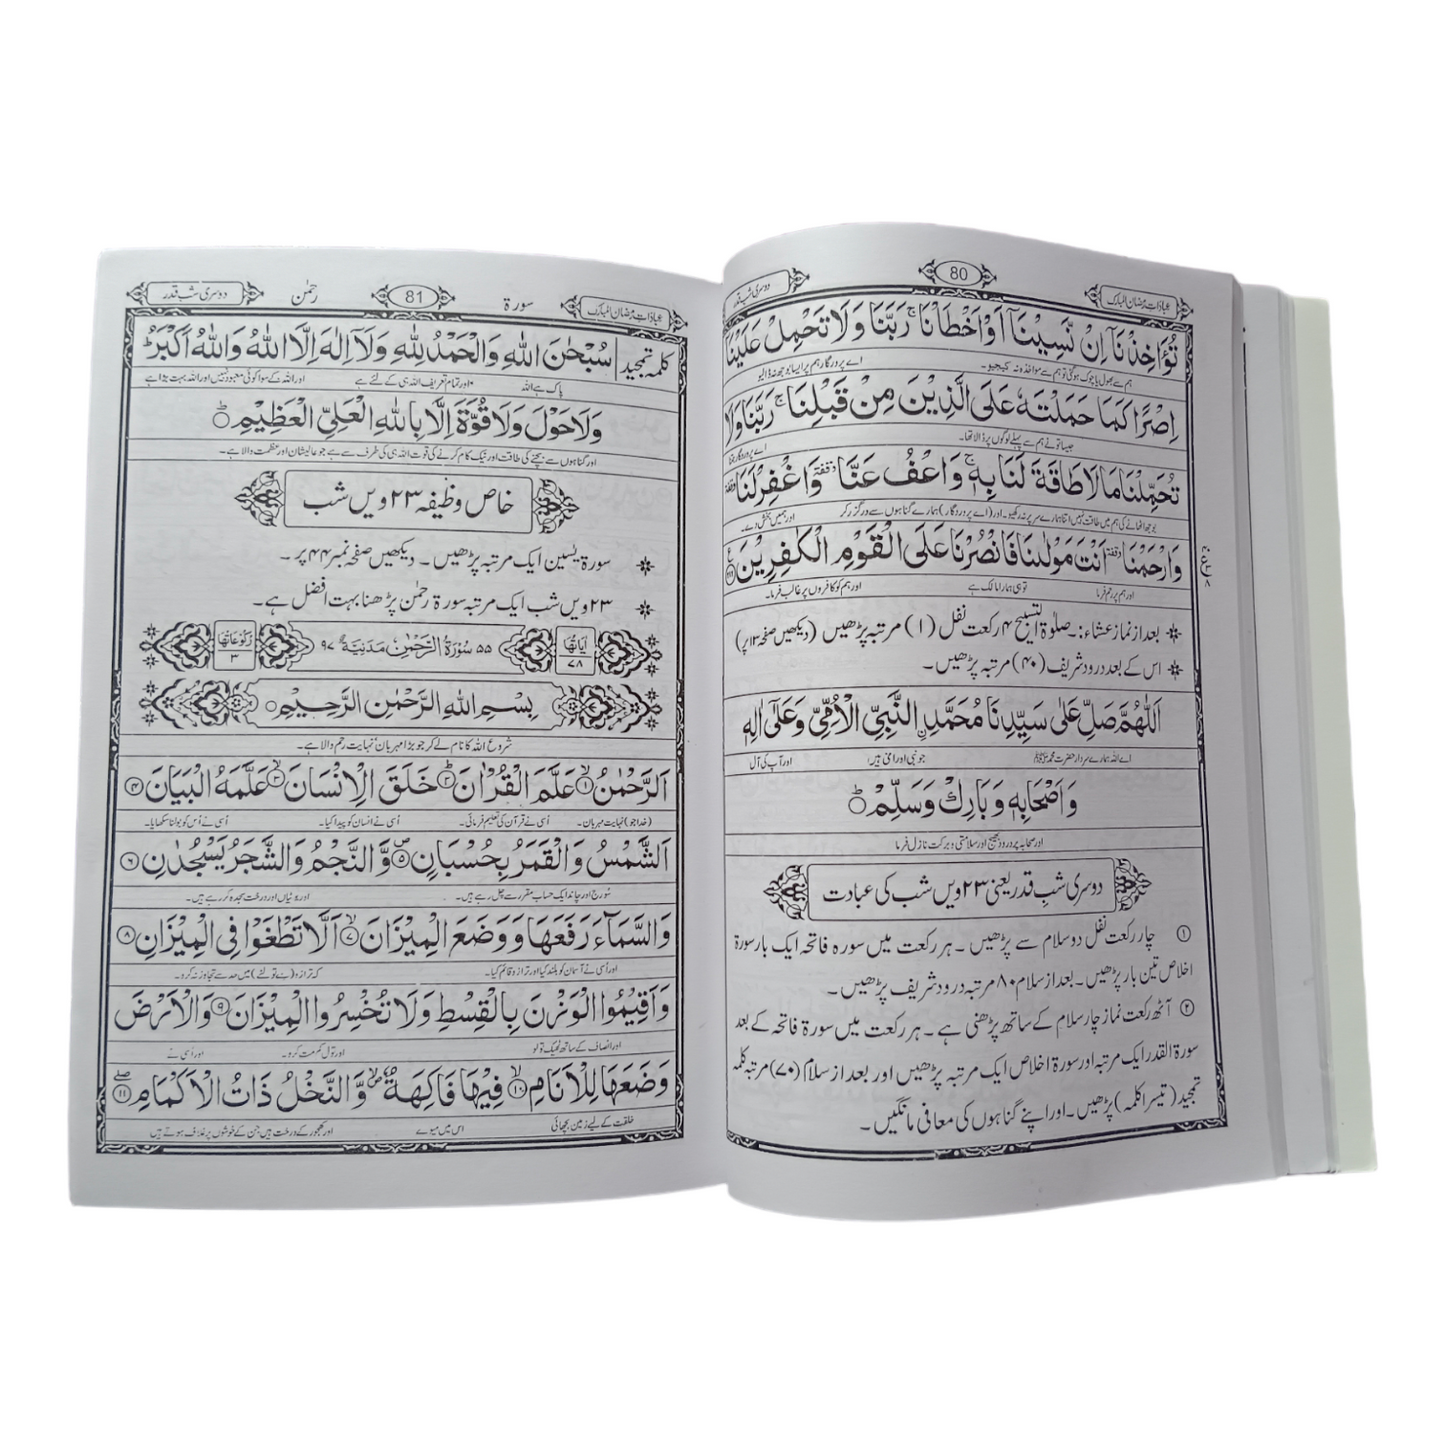 عبادات رمضان المبارک
80
دوسری شب قدر
تُؤَاخِذْنَآ اِنْ نَّسِیْنَآ اَوْ اَخْطَاْنَا ۚ رَبَّنَا وَلَا تَحْمِلْ عَلَیْنَآ
ہم سے بھول یا چوک ہو گئی تو ہم سے مواخذہ نہ کیجیو۔ اے پروردگار ہم پر ایسا بوجھ نہ ڈالیو
اِصْرًا کَمَا حَمَلْتَهٗ عَلَی الَّذِیْنَ مِنْ قَبْلِنَا ۚ رَبَّنَا وَلَا
جیسا تو نے ہم سے پہلے لوگوں پر ڈالا تھا۔ اے پروردگار جتنا
تُحَمِّلْنَا مَا لَا طَاقَةَ لَنَا بِهٖ ۚ وَاعْفُ عَنَّا وقفة وَاغْفِرْ لَنَا وقفة
بوجھ اٹھانے کی ہم میں طاقت نہیں اتنا ہمارے سر پر نہ رکھیو۔ اور (اے پروردگار) ہمارے گناہوں سے درگزر کر اور ہمیں بخش دے۔
وَارْحَمْنَا وقفة اَنْتَ مَوْلٰىنَا فَانْصُرْنَا عَلَی الْقَوْمِ الْکٰفِرِیْنَ
اور ہم پر رحم فرما تو ہی ہمارا مالک ہے اور ہم کو کافروں پر غالب فرما۔
بعد از نماز عشاء:۔ صلوٰۃ التسبیح ۴ رکعت نفل (۱) مرتبہ پڑھیں (دیکھیں صفحہ ۱۳ پر)
اس کے بعد درود شریف (۴۰) مرتبہ پڑھیں۔
اَللّٰهُمَّ صَلِّ عَلٰی سَیِّدِنَا مُحَمَّدِ نِ النَّبِیِّ الْاُمِّیِّ وَعَلٰٓی اٰلِهٖ
اے اللہ ہمارے سردار حضرت محمد ﷺ جو نبی اور امی ہیں اور آپ کی آل
وَاَصْحَابِهٖ وَبَارِكْ وَسَلِّمْ ۝
اور صحابہ پر درود بھیج اور سلامتی و برکت نازل فرما
دوسری شب قدر یعنی ۲۳ ویں شب کی عبادت
① چار رکعت نفل دو سلام سے پڑھیں۔ ہر رکعت میں سورہ فاتحہ ایک بار سورۃ
اخلاص تین بار پڑھیں۔ بعد از سلام ۸۰ مرتبہ درود شریف پڑھیں۔
② آٹھ رکعت نماز چار سلام کے ساتھ پڑھنی ہے۔ ہر رکعت میں سورۃ فاتحہ کے بعد
سورۃ القدر ایک مرتبہ اور سورۃ اخلاص ایک مرتبہ پڑھیں اور بعد از سلام (۷۰) مرتبہ کلمہ
تمجید (تیسرا کلمہ) پڑھیں۔ اور اپنے گناہوں کی معافی مانگیں۔
عبادات رمضان المبارک
سورۃ
81
رحمٰن
دوسری شب قدر
کلمہ تمجید سُبْحٰنَ اللّٰهِ وَالْحَمْدُ لِلّٰهِ وَلَآ اِلٰهَ اِلَّا اللّٰهُ وَاللّٰهُ اَکْبَرُ
پاک ہے اللہ اور تمام تعریف اللہ ہی کے لئے ہے اور اللہ کے سوا کوئی معبود نہیں اور اللہ بہت بڑا ہے
وَلَا حَوْلَ وَلَا قُوَّةَ اِلَّا بِاللّٰهِ الْعَلِیِّ الْعَظِیْمِ ۝
اور گناہوں سے بچنے کی طاقت اور نیک کام کرنے کی قوت اللہ ہی کی طرف سے ہے جو عالیشان اور عظمت والا ہے۔
خاص وظیفہ ۲۳ ویں شب
سورۃ یٰسین ایک مرتبہ پڑھیں۔ دیکھیں صفحہ نمبر ۴۴ پر۔
۲۳ ویں شب ایک مرتبہ سورۃ رحمٰن پڑھنا بہت افضل ہے۔
اٰیاتُها ۷۸ ۵۵ سُوْرَةُ الرَّحْمٰنِ مَدَنِیَّةٌ ۹۷ رُکُوْعَاتُها ۳
بِسْمِ اللّٰهِ الرَّحْمٰنِ الرَّحِیْمِ
شروع اللہ کا نام لے کر جو بڑا مہربان نہایت رحم والا ہے۔
اَلرَّحْمٰنُ ۙ۱ عَلَّمَ الْقُرْاٰنَ ۲ خَلَقَ الْاِنْسَانَ ۙ۳ عَلَّمَهُ الْبَیَانَ ۴
(خدا جو) نہایت مہربان۔ اُسی نے قرآن کی تعلیم فرمائی۔ اُسی نے انسان کو پیدا کیا۔ اُسی نے اُس کو بولنا سکھایا۔
اَلشَّمْسُ وَالْقَمَرُ بِحُسْبَانٍ ۵ وَّالنَّجْمُ وَالشَّجَرُ یَسْجُدٰنِ ۶
سُورج اور چاند ایک حساب مقرر سے چل رہے ہیں۔ اور بوٹیاں اور درخت سجدہ کر رہے ہیں۔
وَالسَّمَآءَ رَفَعَهَا وَوَضَعَ الْمِیْزَانَ ۙ۷ اَلَّا تَطْغَوْا فِی الْمِیْزَانِ ۸
اور اُسی نے آسمان کو بلند کیا اور ترازو قائم کیا۔ کہ ترازو (سے تولنے) میں حد سے تجاوز نہ کرو۔
وَاَقِیْمُوا الْوَزْنَ بِالْقِسْطِ وَلَا تُخْسِرُوا الْمِیْزَانَ ۹ وَالْاَرْضَ
اور انصاف کے ساتھ ٹھیک تولو اور تول کم مت کرو۔ اور اُسی نے
وَضَعَهَا لِلْاَنَامِ ۙ۱۰ فِیْهَا فَاکِهَةٌ وَّالنَّخْلُ ذَاتُ الْاَکْمَامِ ۱۱
خلقت کے لیے زمین بچھائی اس میں میوے اور کھجور کے درخت ہیں جن کے خوشوں پر غلاف ہوتے ہیں